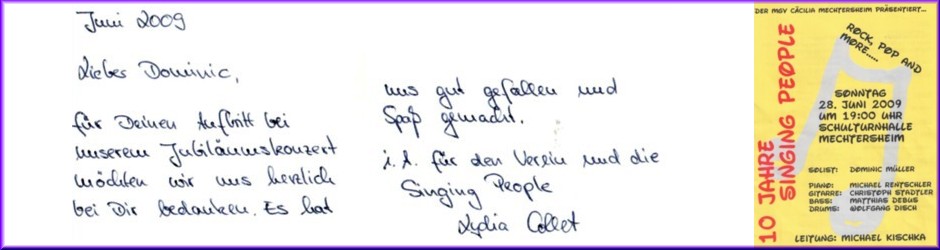 Juni 2009
Liebes Dominic,
für Deinen Auftritt bei
unserem Jubiläumskonzert
möchten wir uns herzlich
bei Dir bedanken. Es hat
uns gut gefallen und
Spaß gemacht.
i. A. für den Verein und die
Singing People
Lydia Collet
DER MGV CÄCILIA MECHTERSHEIM PRÄSENTIERT...
10 JAHRE
SINGING PEOPLE
ROCK, POP AND
MORE.....
SONNTAG
28. JUNI 2009
UM 19:00 UHR
SCHULTURNHALLE
MECHTERSHEIM
SOLIST: DOMINIC MÜLLER
PIANO: MICHAEL RENTSCHLER
GITARRE: CHRISTOPH STADTLER
BASS: MATTHIAS DEBUS
DRUMS: WOLFGANG DISCH
LEITUNG: MICHAEL KISCHKA